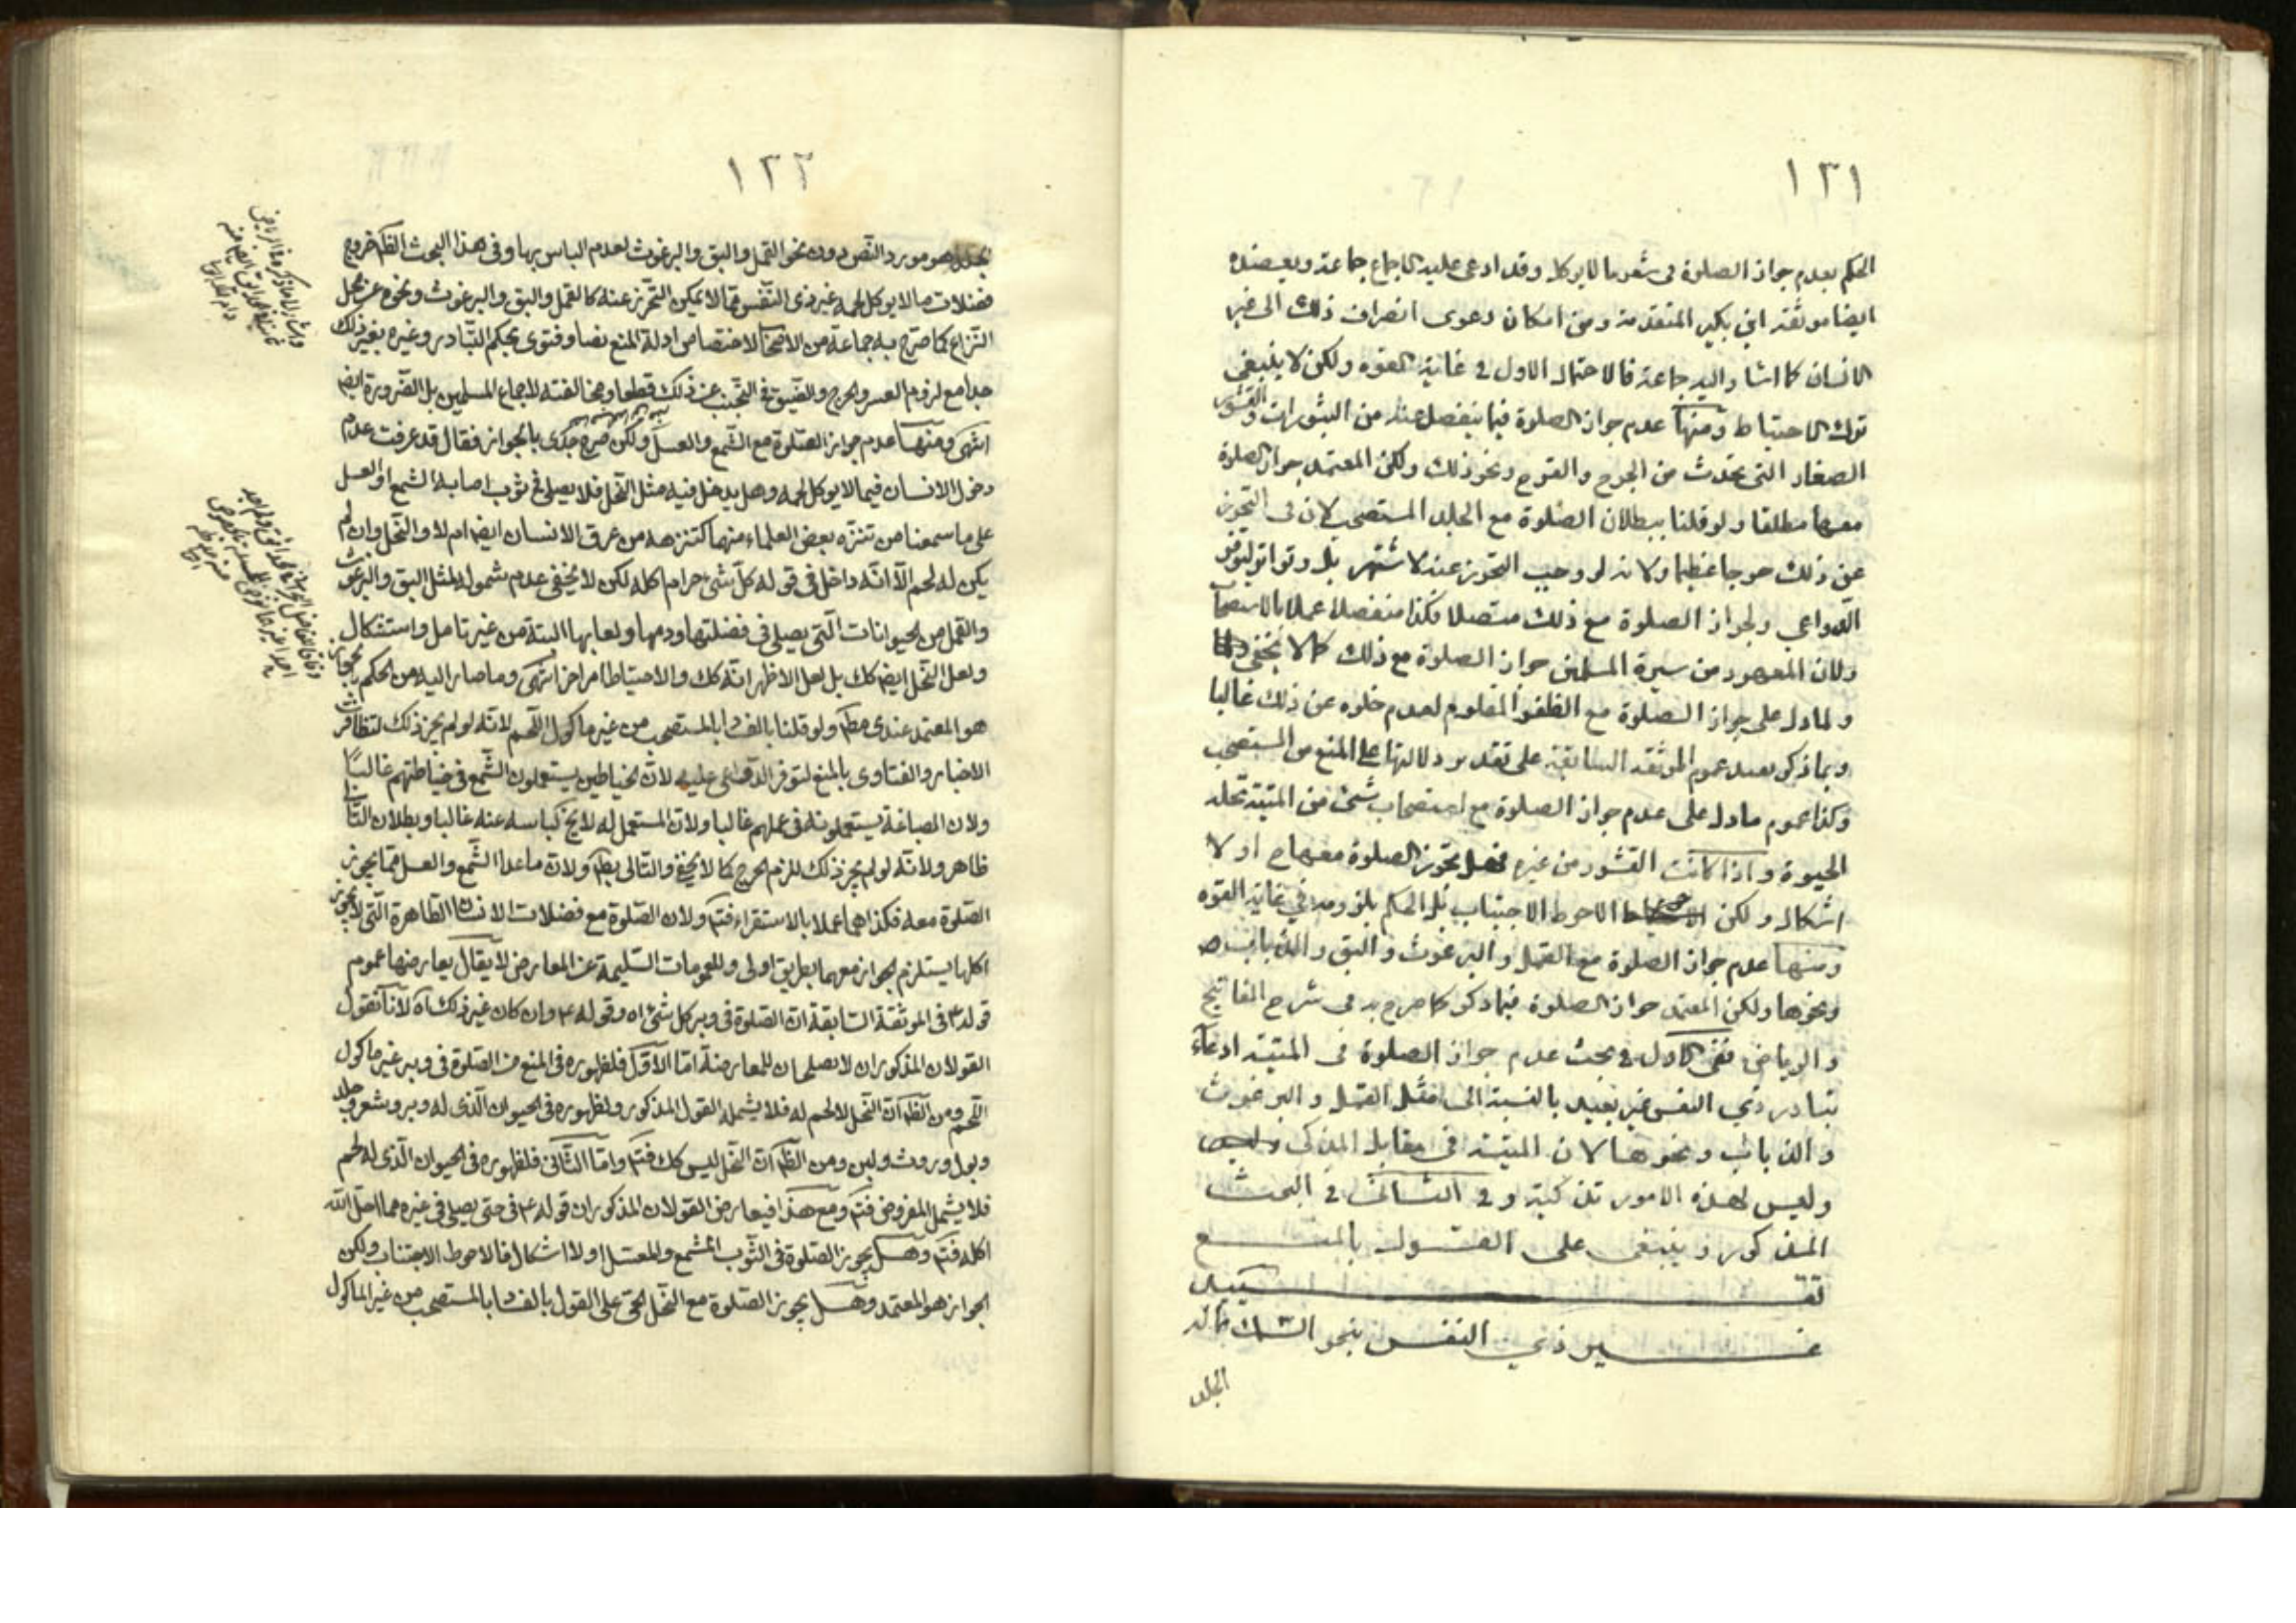 ١٢١
الحكم بعدم جواز الصلوة فى شعر ما لا يوكل وقد ادعى عليه الاجماع جماعة ويعضده
ايضا موثقة ابن بكير المتقدمة ومن امكان دعوى انصراف ذلك الى غير
الانسان كما اشار اليه جماعة فالاحتمال الاول فى غاية القوه ولكن لا ينبغى
ترك الاحتياط ومنها عدم جواز الصلوة فيما ينفصل عنه من البثورات والقشور
الصغار التى تحدث من الجرح والقروح ونحو ذلك ولكن المعتمد جواز الصلوة
معها مطلقا ولو قلنا ببطلان الصلوة مع الجلد المستصحب لان فى التحرز
عن ذلك حرجا عظيما ولانه لو وجب التحرز عنه لاشتهر بل وتواتر لتوفر
الدواعى ولجواز الصلوة مع ذلك متصلا فكذا منفصلا عملا بالاستصحاب
ولان المعهود من سيرة المسلمين جواز الصلوة مع ذلك كما لا يخفى
ولما دل على جواز الصلوة مع الظفر المقلوم لعدم خلوه عن ذلك غالبا
وبما ذكر يقيد عموم الموثقة السابقة على تقدير دلالتها على المنع من المستصحب
وكذا عموم ما دل على عدم جواز الصلوة مع استصحاب شئ من الميتة تحله
الحيوة واذا كانت القشور من غيره فهل تجوز الصلوة معها ح او لا
اشكال ولكن الاحوط الاجتناب بل الحكم بلزومه فى غاية القوه
ومنها عدم جواز الصلوة مع القمل والبرغوث والبق والذباب
ونحوها ولكن المعتمد جواز الصلوة فيما ذكر كما صرح به فى شرح المفاتيح
والرياض ففى الاول فى بحث عدم جواز الصلوة فى الميتة ادعاء
تبادر ذى النفس غير بعيد بالنسبة الى مثل القمل والبرغوث
والذباب ونحوها لان الميتة فى مقابل المذكى
وليس لهذه الامور تذكية وفى الثانى فى البحث
المذكور وينبغى على القول بالمنع
تقييد
غير ذى النفس بنحو السمك فانه
الجلد
١٢٢
هو مورد النص دون نحو القمل والبق والبرغوث لعدم الباس بها وفى هذا البحث الظ خروج
فضلات ما لا يوكل لحمه غير ذى النفس مما لا يمكن التحرز عنه كالقمل والبق والبرغوث ونحوه عن محل
النزاع كما صرح به جماعة من الاصحا لاختصاص ادلة المنع نصا وفتوى بحكم التبادر وغيره بغير ذلك
جدا مع لزوم العسر والحرج والضيق فى التجنب عن ذلك قطعا ومخالفته لاجماع المسلمين بل الضرورة ايض
انتهى ومنها عدم جواز الصلوة مع الشمع والعسل ولكن صرح جدى بالجواز فقال قد عرفت عدم
دخول الانسان فيما لا يوكل لحمه وهل يدخل فيه مثل النحل فلا يصلى فى ثوب اصابه الشمع او العسل
على ما سمعنا من تنزه بعض العلماء منهما كتنزهه من عرق الانسان ايضا ام لا والنحل وان لم
يكن له لحم الا انه داخل فى قوله كل شئ حرام اكله لكن لا يخفى عدم شموله لمثل البق والبرغوث
والقمل من الحيوانات التى يصلى فى فضلتها ودمها ولعابها البتة من غير تامل واستشكال
ولعل النحل ايض كك بل لعل الاظهر انه كك والاحتياط امر اخر انتهى وما صار اليه من الحكم بالجواز
هو المعتمد عندى مط ولو قلنا بالفساد بالمستصحب من غير ماكول اللحم لانه لو لم يجز ذلك لتظافرت
الاخبار والفتاوى بالمنع لتوفر الدواعى عليه لان الخياطين يستعملون الشمع فى خياطتهم غالبا
ولان الصباغة يستعملونه فى عملهم غالبا ولان المستعمل له لا يخ لباسه عنه غالبا وبطلان التا
ظاهر ولانه لو لم يجز ذلك للزم الحرج كما لا يخفى والتالى بط ولان ما عدا الشمع والعسل مما يجوز
الصلوة معه فكذا هما عملا بالاستقراء فتم ولان الصلوة مع فضلات الانسان الطاهرة التى لا يجوز
اكلها يستلزم الجواز معهما بطريق اولى وللعمومات السليمة عن المعارض لا يقال يعارضها عموم
قوله ع فى الموثقة السابقة ان الصلوة فى وبر كل شئ اه وقوله ع وان كان غير ذلك اه لانا نقول
القولان المذكوران لا يصلحان للمعارضة اما الاول فلظهوره فى المنع من الصلوة فى وبر غير ماكول
اللحم ومن الظ ان النحل لا لحم له فلا يشمله القول المذكور ولظهوره فى الحيوان الذى له وبر وشعر وجلد
وبول وروث ولبن ومن الظ ان النحل ليس كك فتم واما الثانى فلظهوره فى الحيوان الذى له لحم
فلا يشمل المفروض فتم ومع هذا فيعارض القولان المذكوران قوله ع فى حتى يصلى فى غيره مما احل الله
اكله فتم وهل يجوز الصلوة فى الثوب المشمع والمعسل اولا اشكال فالاحوط الاجتناب ولكن
الجواز هو المعتمد وهل يجوز الصلوة مع النحل الحى على القول بالفساد بالمستصحب من غير الماكول